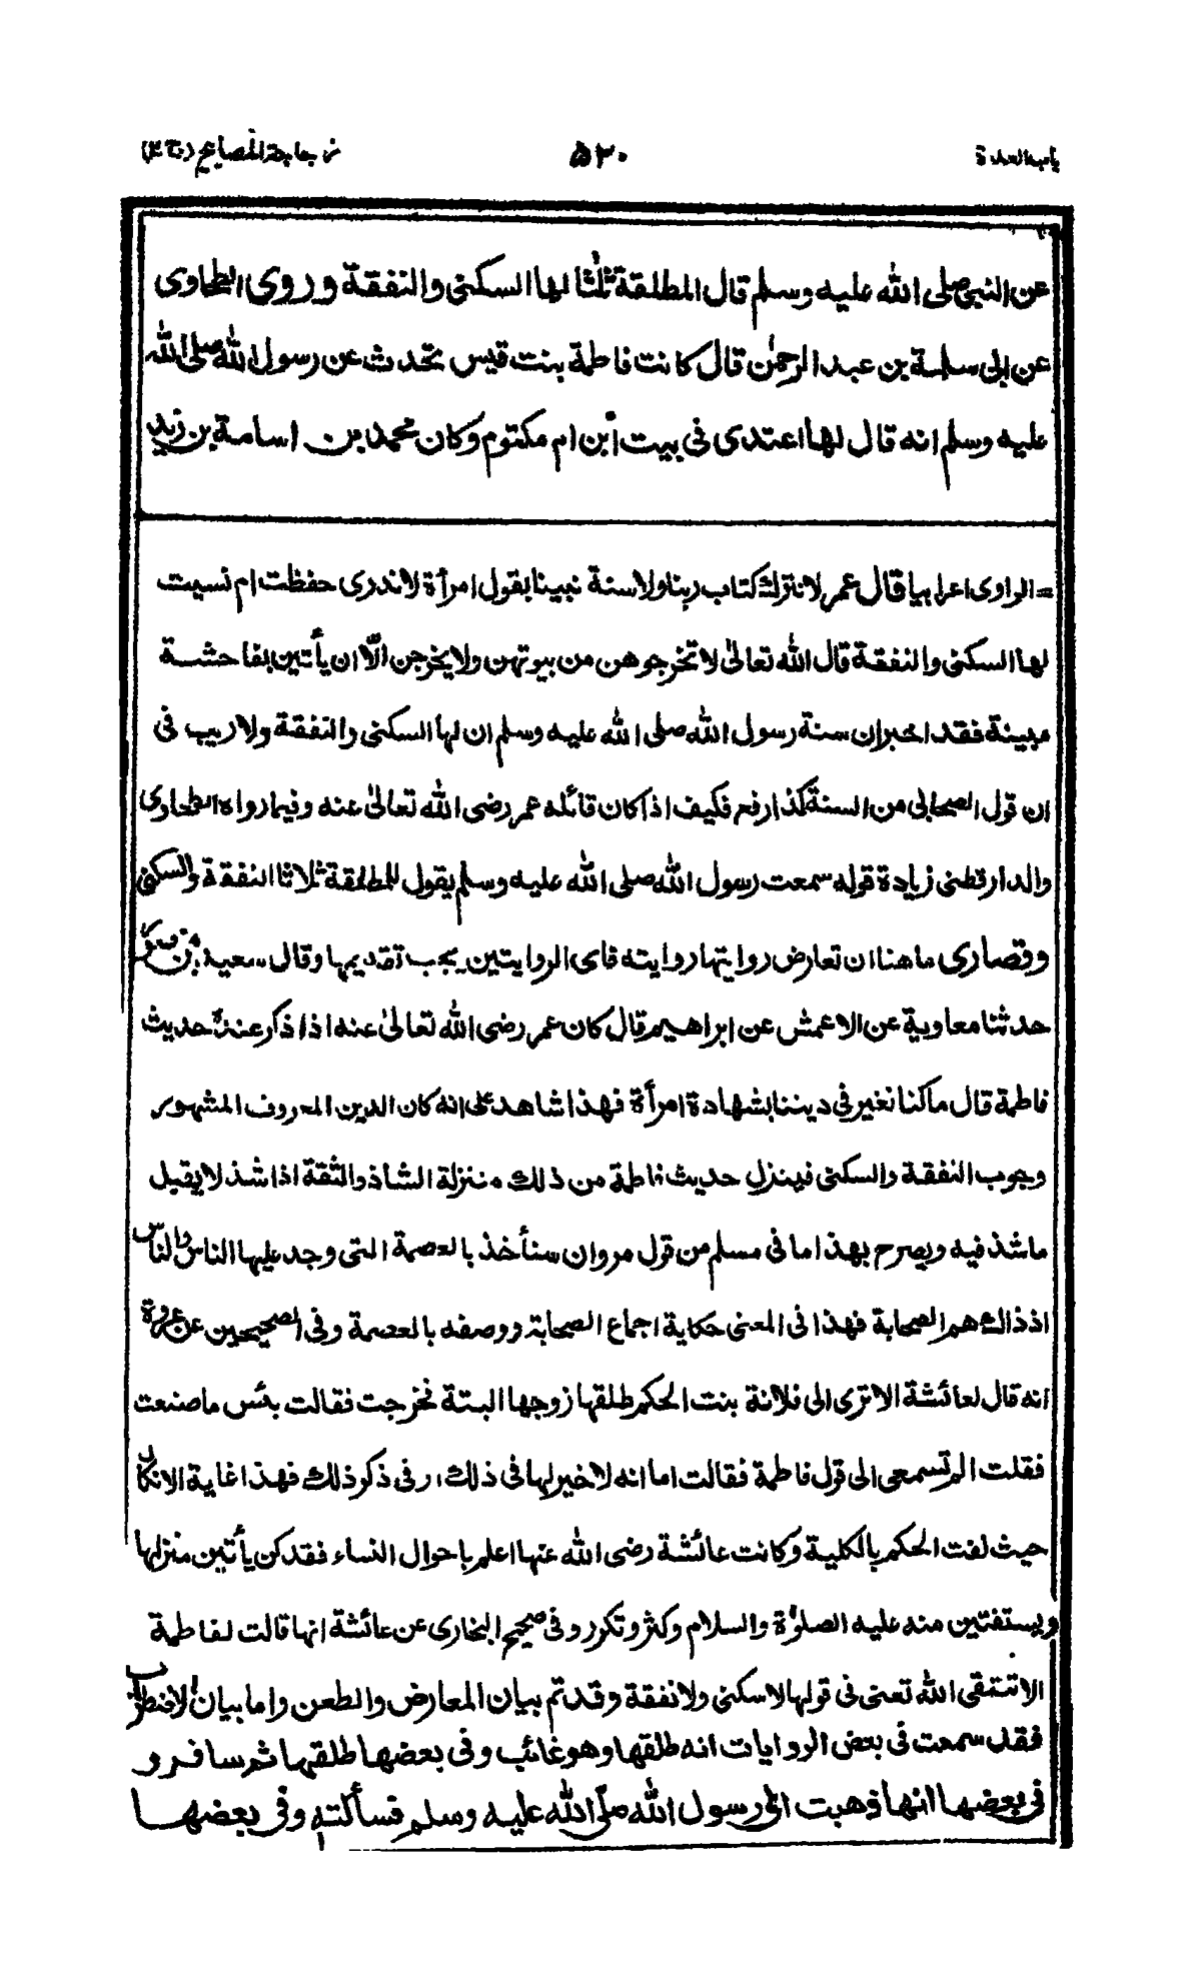 باب العدة ۵۲۰ زجاجة المصابيح (ج ۲)
عن النبي صلى الله عليه وسلم قال المطلقة ثلثا لها السكنى والنفقة وروى الطحاوى
عن ابى سلمة بن عبد الرحمٰن قال كانت فاطمة بنت قيس تحدث عن رسول الله صلى الله
عليه وسلم انه قال لها اعتدى فى بيت ابن ام مكتوم وكان محمد بن اسامة بن زيد
= الراوى اعرابيا قال عمر لا نترك كتاب ربنا ولا سنة نبينا بقول امرأة لا ندرى حفظت ام نسيت
لها السكنى والنفقة قال الله تعالىٰ لا تخرجوهن من بيوتهن ولا يخرجن الّا ان يأتين بفاحشة
مبينة فقد اخبر ان سنة رسول الله صلى الله عليه وسلم ان لها السكنى والنفقة ولا ريب فى
ان قول الصحابى من السنة كذا رفع فكيف اذا كان قائله عمر رضى الله تعالىٰ عنه وفيما رواه الطحاوى
والدارقطنى زيادة قوله سمعت رسول الله صلى الله عليه وسلم يقول للمطلقة ثلاثا النفقة والسكنى
وقصارى ما هنا ان تعارض روايتها روايته فاى الروايتين يجب تقديمها وقال سعيد بن منصور
حدثنا معاوية عن الاعمش عن ابراهيم قال كان عمر رضى الله تعالىٰ عنه اذا ذكر عنده حديث
فاطمة قال ما كنا نغير فى ديننا بشهادة امرأة فهذا شاهد على انه كان الدين المعروف المشهور
وجوب النفقة والسكنى فينزل حديث فاطمة من ذلك منزلة الشاذ والثقة اذا شذ لا يقبل
ما شذ فيه ويصرح بهذا ما فى مسلم من قول مروان سنأخذ بالعصمة التى وجد عليها الناس والناس
اذ ذاك هم الصحابة فهذا فى المعنى حكاية اجماع الصحابة ووصفه بالعصمة وفى الصحيحين عن عروة
انه قال لعائشة الا ترى الى فلانة بنت الحكم طلقها زوجها البتة فخرجت فقالت بئس ما صنعت
فقلت الم تسمعى الى قول فاطمة فقالت اما انه لا خير لها فى ذلك ار فى ذكر ذلك فهذا غاية الانكار
حيث لفت الحكم بالكلية وكانت عائشة رضى الله عنها اعلم باحوال النساء فقد كن يأتين منزلها
ويستفتين منه عليه الصلوٰة والسلام وكثر وتكرر وفى صحيح البخارى عن عائشة انها قالت لفاطمة
الا تتقى الله تعنى فى قولها لا سكنى ولا نفقة وقد تم بيان المعارض والطعن واما بيان الاضطراب
فقد سمعت فى بعض الروايات انه طلقها وهو غائب وفى بعضها طلقها ثم سافر و
فى بعضها انها ذهبت الى رسول الله صلى الله عليه وسلم فسألته وفى بعضها